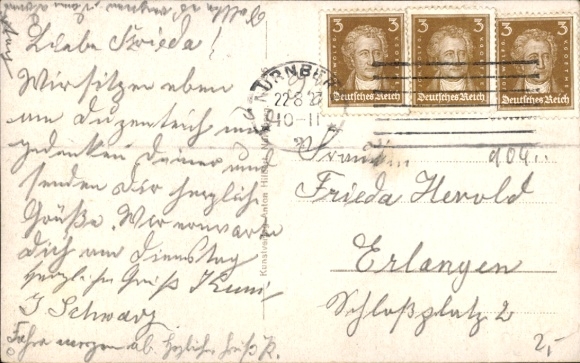 Liebe Frieda!
Wir sitzen eben
am Duzenteich und
gedenken Deiner und
senden Dir herzlich
Grüße. Wir erwarten
Dich am Dienstag
herzliche Grüße Kuni
J Schwarz
Fahre morgen ab. Herzliche Grüße K.
Kunstverlag Anton Hilbert
3 3 3
Deutsches Reich Deutsches Reich Deutsches Reich
NÜRNBERG
22 8 27
10-11
Fräulein
Frieda Herold
Erlangen
Schloßplatz 2
2,-